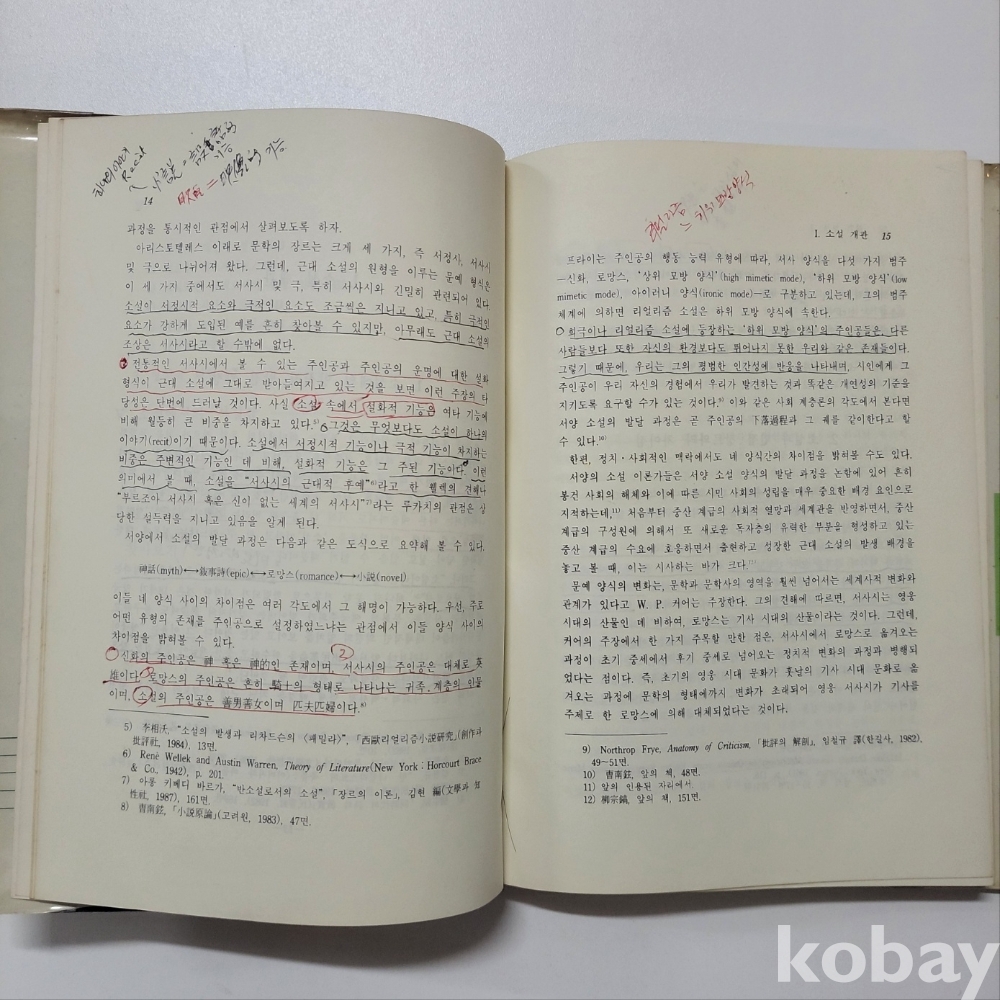 Recit
14
과정을 통시적인 관점에서 살펴보도록 하자.
아리스토텔레스 이래로 문학의 장르는 크게 세 가지, 즉 서정시, 서사시
및 극으로 나뉘어져 왔다. 그런데, 근대 소설의 원형을 이루는 문예 형식은
이 세 가지 중에서도 서사시 및 극, 특히 서사시와 긴밀히 관련되어 있다.
소설이 서정시적 요소와 극적인 요소도 조금씩은 지니고 있고, 특히 극적인
요소가 강하게 도입된 예를 흔히 찾아볼 수 있지만, 아무래도 근대 소설의
조상은 서사시라고 할 수밖에 없다.
전통적인 서사시에서 볼 수 있는 주인공과 주인공의 운명에 대한 설화
형식이 근대 소설에 그대로 받아들여지고 있는 것을 보면 이런 주장의 타
당성은 단번에 드러날 것이다. 사실 소설 속에서 설화적 기능은 여타 기능에
비해 월등히 큰 비중을 차지하고 있다.5) 그것은 무엇보다도 소설이 하나의
이야기(recit)이기 때문이다. 소설에서 서정시적 기능이나 극적 기능이 차지하는
비중은 주변적인 기능인 데 비해, 설화적 기능은 그 주된 기능이다. 이런
의미에서 볼 때, 소설을 “서사시의 근대적 후예”6)라고 한 웰렉의 견해나
“부르조아 서사시 혹은 신이 없는 세계의 서사시”7)라는 루카치의 관점은 상
당한 설득력을 지니고 있음을 알게 된다.
서양에서 소설의 발달 과정은 다음과 같은 도식으로 요약해 볼 수 있다.
神話(myth)⟷敍事詩(epic)⟷로망스(romance)⟷小說(novel)
이들 네 양식 사이의 차이점은 여러 각도에서 그 해명이 가능하다. 우선, 주로
어떤 유형의 존재를 주인공으로 설정하였느냐는 관점에서 이들 양식 사이의
차이점을 밝혀볼 수 있다.
2
신화의 주인공은 神 혹은 神的인 존재이며, 서사시의 주인공은 대체로 英
雄이다. 로망스의 주인공은 흔히 騎士의 형태로 나타나는 귀족 계층의 인물
이며, 소설의 주인공은 善男善女이며 匹夫匹婦이다.8)
5) 李相沃, “소설의 발생과 리차드슨의 〈패밀라〉”, 「西歐리얼리즘小說硏究」(創作과
批評社, 1984), 13면.
6) René Wellek and Austin Warren, Theory of Literature(New York : Horcourt Brace
& Co., 1942), p. 201.
7) 아퐁 키베디 바르가, “반소설로서의 소설”, 「장르의 이론」, 김현 編(文學과 知
性社, 1987), 161면.
8) 靑南鉉, 「小說原論」(고려원, 1983), 47면.
Ⅰ. 소설 개관 15
프라이는 주인공의 행동 능력 유형에 따라, 서사 양식을 다섯 가지 범주
—신화, 로망스, ‘상위 모방 양식’(high mimetic mode), ‘하위 모방 양식’(low
mimetic mode), 아이러니 양식(ironic mode)—로 구분하고 있는데, 그의 범주
체계에 의하면 리얼리즘 소설은 하위 모방 양식에 속한다.
희극이나 리얼리즘 소설에 등장하는 ‘하위 모방 양식’의 주인공들은, 다른
사람들보다 또한 자신의 환경보다도 뛰어나지 못한 우리와 같은 존재들이다.
그렇기 때문에, 우리는 그의 평범한 인간성에 반응을 나타내며, 시인에게 그
주인공이 우리 자신의 경험에서 우리가 발견하는 것과 똑같은 개연성의 기준을
지키도록 요구할 수가 있는 것이다.9) 이와 같은 사회 계층론의 각도에서 본다면
서양 소설의 발달 과정은 곧 주인공의 下落過程과 그 궤를 같이한다고 할
수 있다.10)
한편, 정치·사회적인 맥락에서도 네 양식간의 차이점을 밝혀볼 수도 있다.
서양의 소설 이론가들은 서양 소설 양식의 발달 과정을 논함에 있어 흔히
봉건 사회의 해체와 이에 따른 시민 사회의 성립을 매우 중요한 배경 요인으로
지적하는데,11) 처음부터 중산 계급의 사회적 열망과 세계관을 반영하면서, 중산
계급의 구성원에 의해서 또 새로운 독자층의 유력한 부분을 형성하고 있는
중산 계급의 수요에 호응하면서 출현하고 성장한 근대 소설의 발생 배경을
놓고 볼 때, 이는 시사하는 바가 크다.
문예 양식의 변화는, 문학과 문학사의 영역을 훨씬 넘어서는 세계사적 변화와
관계가 있다고 W. P. 커어는 주장한다. 그의 견해에 따르면, 서사시는 영웅
시대의 산물인 데 비하여, 로망스는 기사 시대의 산물이라는 것이다. 그런데,
커어의 주장에서 한 가지 주목할 만한 점은, 서사시에서 로망스로 옮겨오는
과정이 초기 중세에서 후기 중세로 넘어오는 정치적 변화의 과정과 병행되
었다는 점이다. 즉, 초기의 영웅 시대 문화가 훗날의 기사 시대 문화로 옮
겨오는 과정에 문학의 형태에까지 변화가 초래되어 영웅 서사시가 기사를
주제로 한 로망스에 의해 대체되었다는 것이다.
9) Northrop Frye, Anatomy of Criticism, 「批評의 解剖」, 임철규 譯(한길사, 1982),
49~51면.
10) 靑南鉉, 앞의 책, 48면.
11) 앞의 인용된 자리에서.
12) 柳宗鎬, 앞의 책, 151면.
kobay